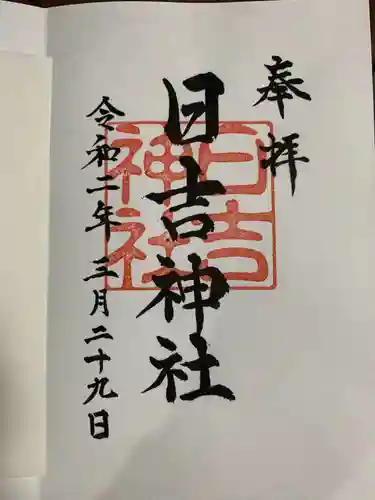 奉拝
日吉神社
日吉
神社
令和二年三月二十九日